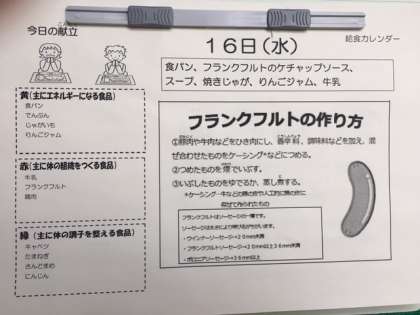 今日の献立
こんだて
16日(水)
給食カレンダー
食パン、フランクフルトのケチャップソース、
スープ、焼きじゃが、りんごジャム、牛乳
黄(主にエネルギーになる食品)
食パン
でんぷん
じゃがいも
りんごジャム
赤(主に体の組織をつくる食品)
牛乳
フランクフルト
鶏肉
緑(主に体の調子を整える食品)
キャベツ
たまねぎ
さんどまめ
にんじん
フランクフルトの作り方
①豚肉や牛肉などをひき肉にし、香辛料、調味料などを加え、混
ぜ合わせたものをケーシング*などにつめる。
②つめたものを煙でいぶす。
③いぶしたものをゆでるか、蒸し煮する。
*ケーシング・牛などの腸の皮や人工的に腸の皮に
似せて作られたもの
フランクフルトはソーセージの一種です。
ソーセージは太さにより呼び名がちがいます。
・ウインナーソーセージ→20mm未満
・フランクフルトソーセージ→20mm以上36mm未満
・ボロニアソーセージ→36mm以上